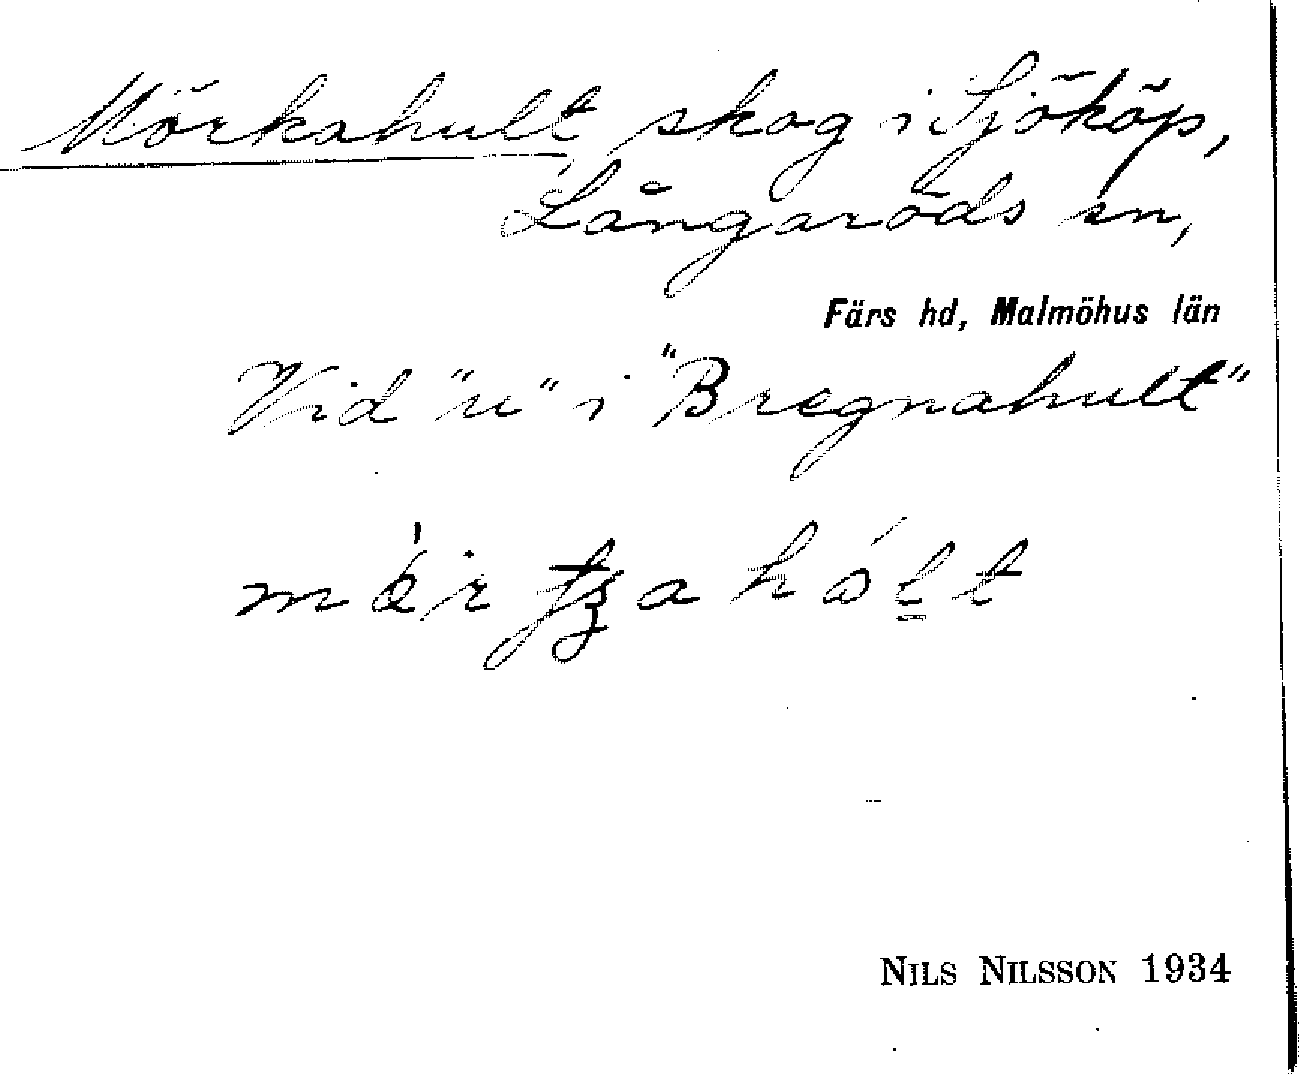 Mörkahult skog i Sjököp,
Långaröds sn,
Färs hd, Malmöhus län
Vid "re" i "Bregnahult"
NILS NILSSON 1934